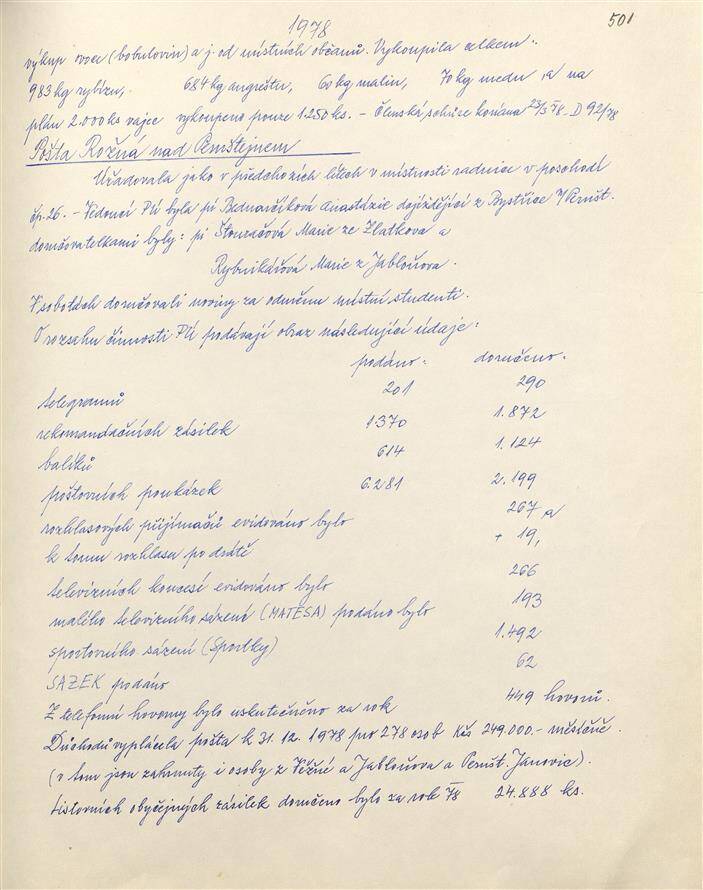 1978
501
výkup ovoce (bobulovin) a j. od místních občanů. Vykoupila celkem:
983 kg rybízu, 684 kg angreštu, 60 kg malin, 70 kg medu, a na
plán 2.000 ks vajec vykoupeno pouze 1.250 ks. – Členská schůze konána 23/3 78 – D 92/78
Pošta Rožná nad Pernštejnem
Úřadovala jako v předchozích létech v místnosti radnice v poschodí
čp. 26. – Vedoucí PÚ byla pí Bednaříková Anastázie dojíždějící z Bystřice n/Pernšt.
doručovatelkami byly: pí Štouračová Marie ze Zlatkova a
Rybníkářová Marie z Jabloňova.
V sobotách doručovali noviny za odměnu místní studenti.
O rozsahu činnosti PÚ podávají obraz následující údaje:
podáno: doručeno:
telegramů 201 290
rekomandačních zásilek 1370 1.872
balíků 614 1.124
poštovních poukázek 6.281 2.199
rozhlasových přijímačů evidováno bylo 267 a
k tomu rozhlasu po drátě + 19,
televizních koncesí evidováno bylo 266
malého televizního sázení (MATESA) podáno bylo 193
sportovního sázení (Sportky) 1.492
SAZEK podáno 62
Z telefonů hovorny bylo uskutečněno za rok 449 hovorů.
Důchodů vyplácela pošta k 31. 12. 1978 pro 278 osob Kčs 249.000.- měsíčně.
(v tom jsou zahrnuty i osoby z Věžné a Jabloňova a Pernšt. Janovic).
Listovních obyčejných zásilek doručeno bylo za rok 78 24.888 ks.